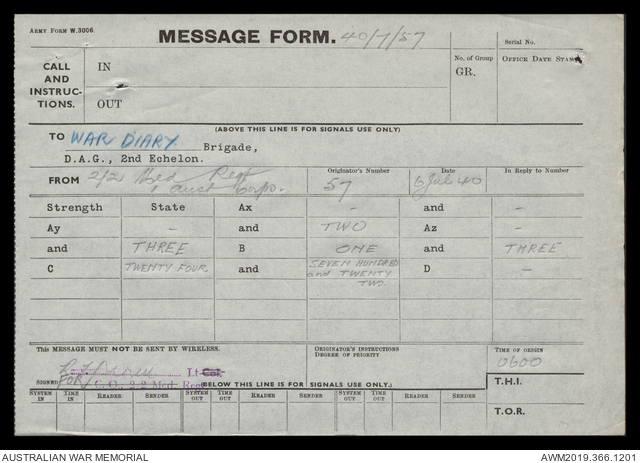 ARMY FORM W.3006.
MESSAGE FORM. 40/7/57
Serial No.
CALL AND INSTRUC- TIONS.
IN
OUT
No. of Group
GR.
OFFICE DATE STAMP
(ABOVE THIS LINE IS FOR SIGNALS USE ONLY)
TO WAR DIARY Brigade,
D.A.G., 2nd Echelon.
FROM 2/2 Med Regt
1 Aust Corps.
Originator's Number
57
Date
6 Jul 40
In Reply to Number
Strength State Ax - and -
Ay - and TWO Az -
and THREE B ONE and THREE
C TWENTY FOUR and SEVEN HUNDRED and TWENTY TWO D -
THIS MESSAGE MUST NOT BE SENT BY WIRELESS.
ORIGINATOR'S INSTRUCTIONS
DEGREE OF PRIORITY
TIME OF ORIGIN
0600
Lt-Col.
SIGNED FOR C.O. 2/2 Med. Regt
(BELOW THIS LINE IS FOR SIGNALS USE ONLY.)
T.H.I.
T.O.R.
SYSTEM IN TIME IN READER SENDER SYSTEM OUT TIME OUT READER SENDER SYSTEM OUT TIME OUT READER SENDER
AUSTRALIAN WAR MEMORIAL
AWM2019.366.1201